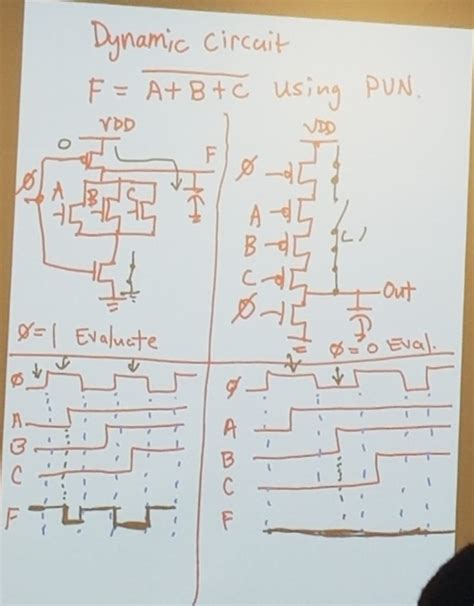 Dynamic Circuit
F = A+B+C using PUN.
VDD
0
F
Ø
A
B
C
Ø=1 Evaluate
VDD
Ø
A
B
C
Ø
Out
Ø=0 Eval.
Ø
A
B
C
F
Ø
A
B
C
F